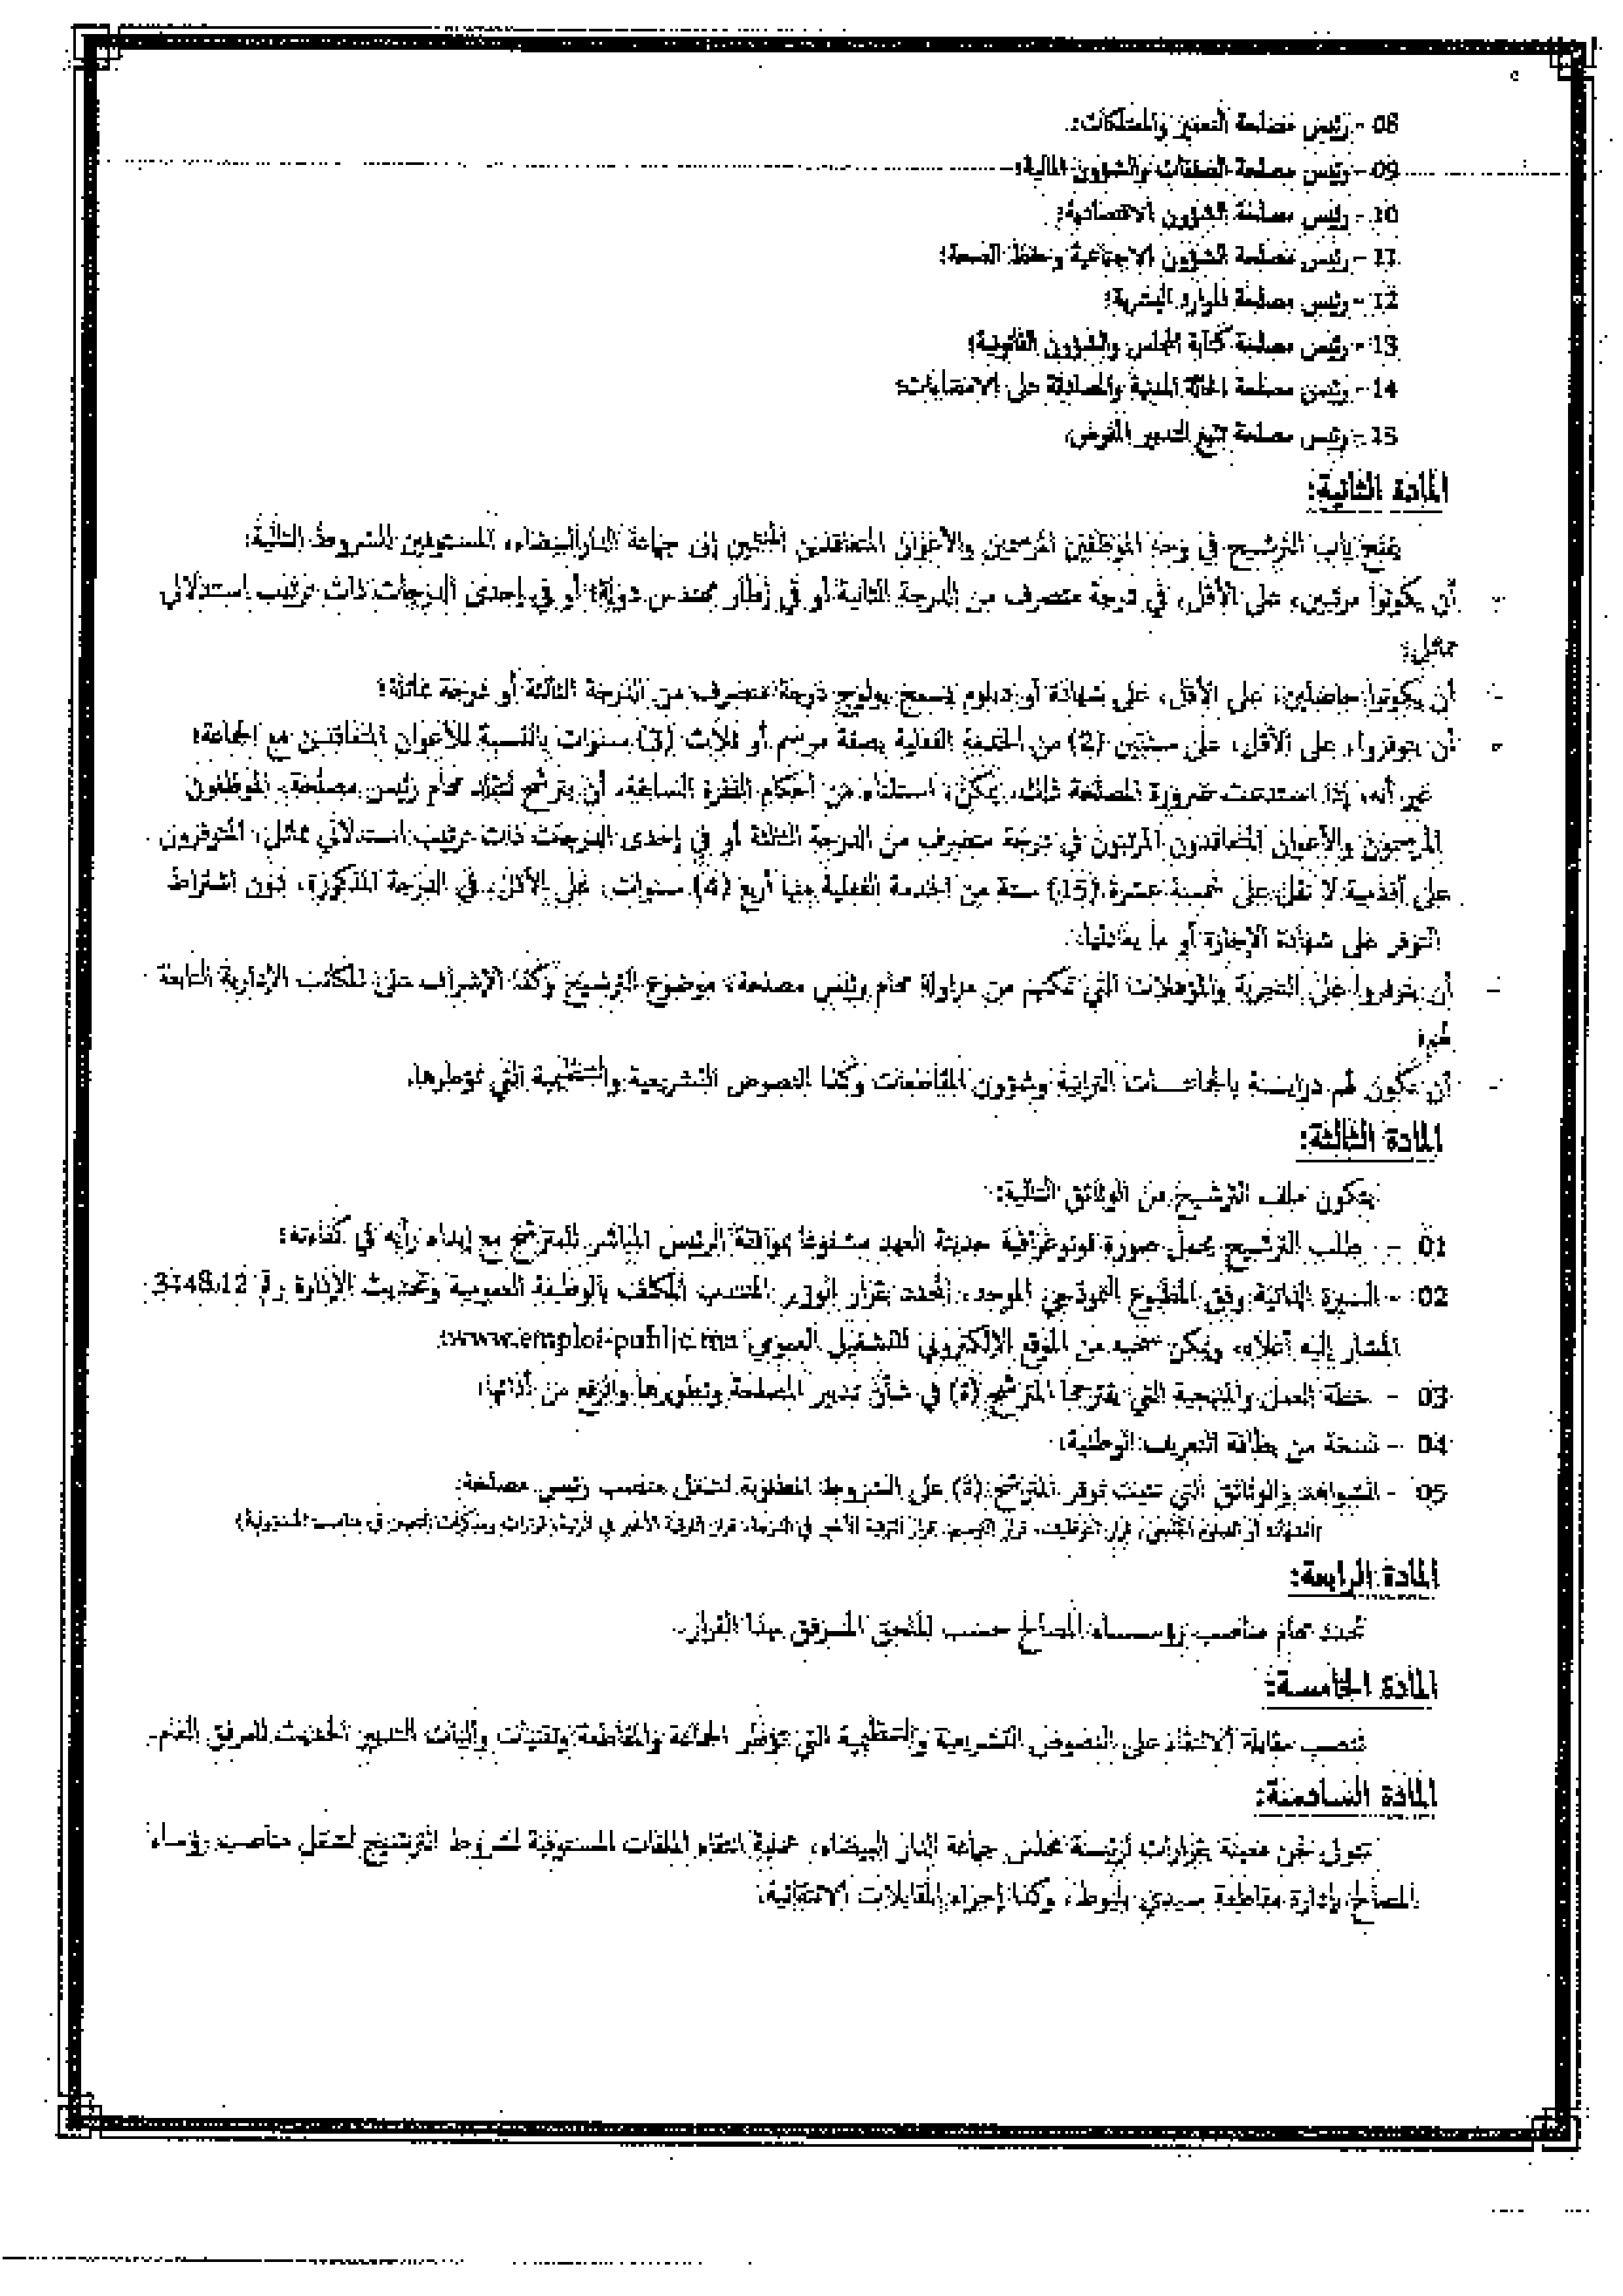 08 - رئيس مصلحة التعمير والممتلكات؛
09 - رئيس مصلحة الصفقات والشؤون المالية؛
10 - رئيس مصلحة الشؤون الاقتصادية؛
11 - رئيس مصلحة الشؤون الاجتماعية وحفظ الصحة؛
12 - رئيس مصلحة الموارد البشرية؛
13 - رئيس مصلحة كتابة المجلس والشؤون القانونية؛
14 - رئيس مصلحة الحالة المدنية والمصادقة على الامضاءات؛
15 - رئيس مصلحة تتبع التدبير المفوض.
المادة الثانية:
يفتح باب الترشيح في وجه الموظفين المرسمين والأعوان المتعاقدين المنتمين إلى جماعة الدار البيضاء، المستوفين للشروط التالية:
- أن يكونوا مرتبين، على الأقل، في درجة متصرف من الدرجة الثانية أو في إطار مهندس دولة؛ أو في إحدى الدرجات ذات ترتيب استدلالي
مماثل؛
- أن يكونوا حاصلين، على الأقل، على شهادة أو دبلوم يسمح بولوج درجة متصرف من الدرجة الثالثة أو درجة مماثلة؛
- أن يتوفروا، على الأقل، على سنتين (2) من الخدمة الفعلية بصفة مرسم أو ثلاث (3) سنوات بالنسبة للأعوان المتعاقدين مع الجماعة؛
غير أنه، إذا استدعت ضرورة المصلحة ذلك، يمكن، استثناء من أحكام الفقرة السابقة، أن يترشح لتقلد مهام رئيس مصلحة، الموظفون
المرسمون والأعوان المتعاقدون المرتبون في درجة متصرف من الدرجة الثالثة أو في إحدى الدرجات ذات ترتيب استدلالي مماثل، المتوفرون
على أقدمية لا تقل على خمسة عشرة (15) سنة من الخدمة الفعلية منها أربع (4) سنوات، على الأقل، في الدرجة المذكورة، دون اشتراط
التوفر على شهادة الإجازة أو ما يعادلها.
- أن يتوفروا على التجربة والمؤهلات التي تمكنهم من مزاولة مهام رئيس مصلحة، موضوع الترشيح وكذا الإشراف على المكاتب الإدارية التابعة
لها؛
- أن تكون لهم دراية بالجماعات الترابية وشؤون المقاطعات وكذا النصوص التشريعية والتنظيمية التي تؤطرها.
المادة الثالثة:
يتكون ملف الترشيح من الوثائق التالية:
01 - طلب الترشيح يحمل صورة فوتوغرافية حديثة العهد مشفوعا بموافقة الرئيس المباشر للمترشح مع إبداء رأيه في كفاءته؛
02 - السيرة الذاتية وفق المطبوع النموذجي الموحد، المحدد بقرار الوزير المنتدب المكلف بالوظيفة العمومية وتحديث الإدارة رقم 3448.12
المشار إليه أعلاه، ويمكن سحبه من الموقع الإلكتروني للتشغيل العمومي www.emploi-public.ma؛
03 - خطة العمل والمنهجية التي يقترحها المترشح (ة) في شأن تدبير المصلحة وتطويرها والرفع من أدائها؛
04 - نسخة من بطاقة التعريف الوطنية؛
05 - الشواهد والوثائق التي تثبت توفر المترشح (ة) على الشروط المطلوبة لشغل منصب رئيس مصلحة.
المادة الرابعة:
تحدد مهام مناصب رؤساء المصالح حسب الملحق المرفق بهذا القرار.
المادة الخامسة:
تنصب مقابلة الانتقاء على النصوص التشريعية والتنظيمية التي تؤطر الجماعة والمقاطعة وتقنيات وآليات التدبير الحديث للمرفق العام.
المادة السادسة:
تتولى لجن معينة بقرارات لرئيسة مجلس جماعة الدار البيضاء، عملية انتقاء الملفات المستوفية لشروط الترشيح لشغل مناصب رؤساء
المصالح بإدارة مقاطعة سيدي بليوط، وكذا إجراء المقابلات الانتقائية.